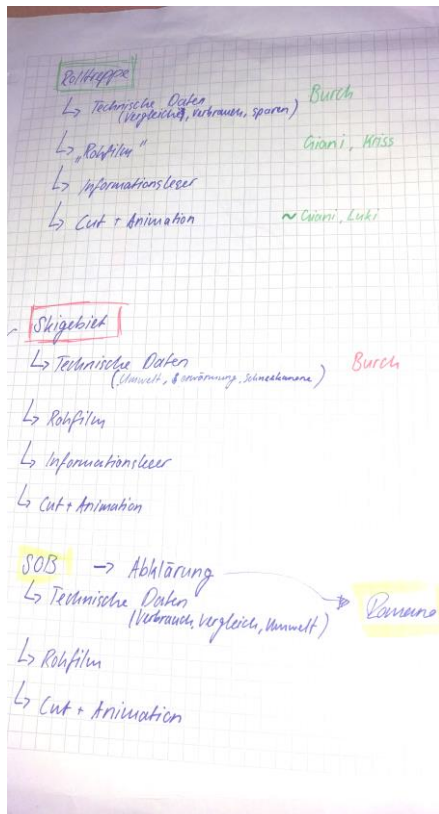 Rolltreppe
↳ Technische Daten Burch
(Vergleich, verbrauch, sparen)
↳ „Rohfilm" Giani, Kriss
↳ Informationsleser
↳ Cut + Animation ~ Giani, Luki
Skigebiet
↳ Technische Daten Burch
(Umwelt, erwärmung, Schneekanone)
↳ Rohfilm
↳ Informationsleser
↳ Cut + Animation
SOB → Abklärung
↳ Technische Daten Romano
(Verbrauch, Vergleich, Umwelt)
↳ Rohfilm
↳ Cut + Animation